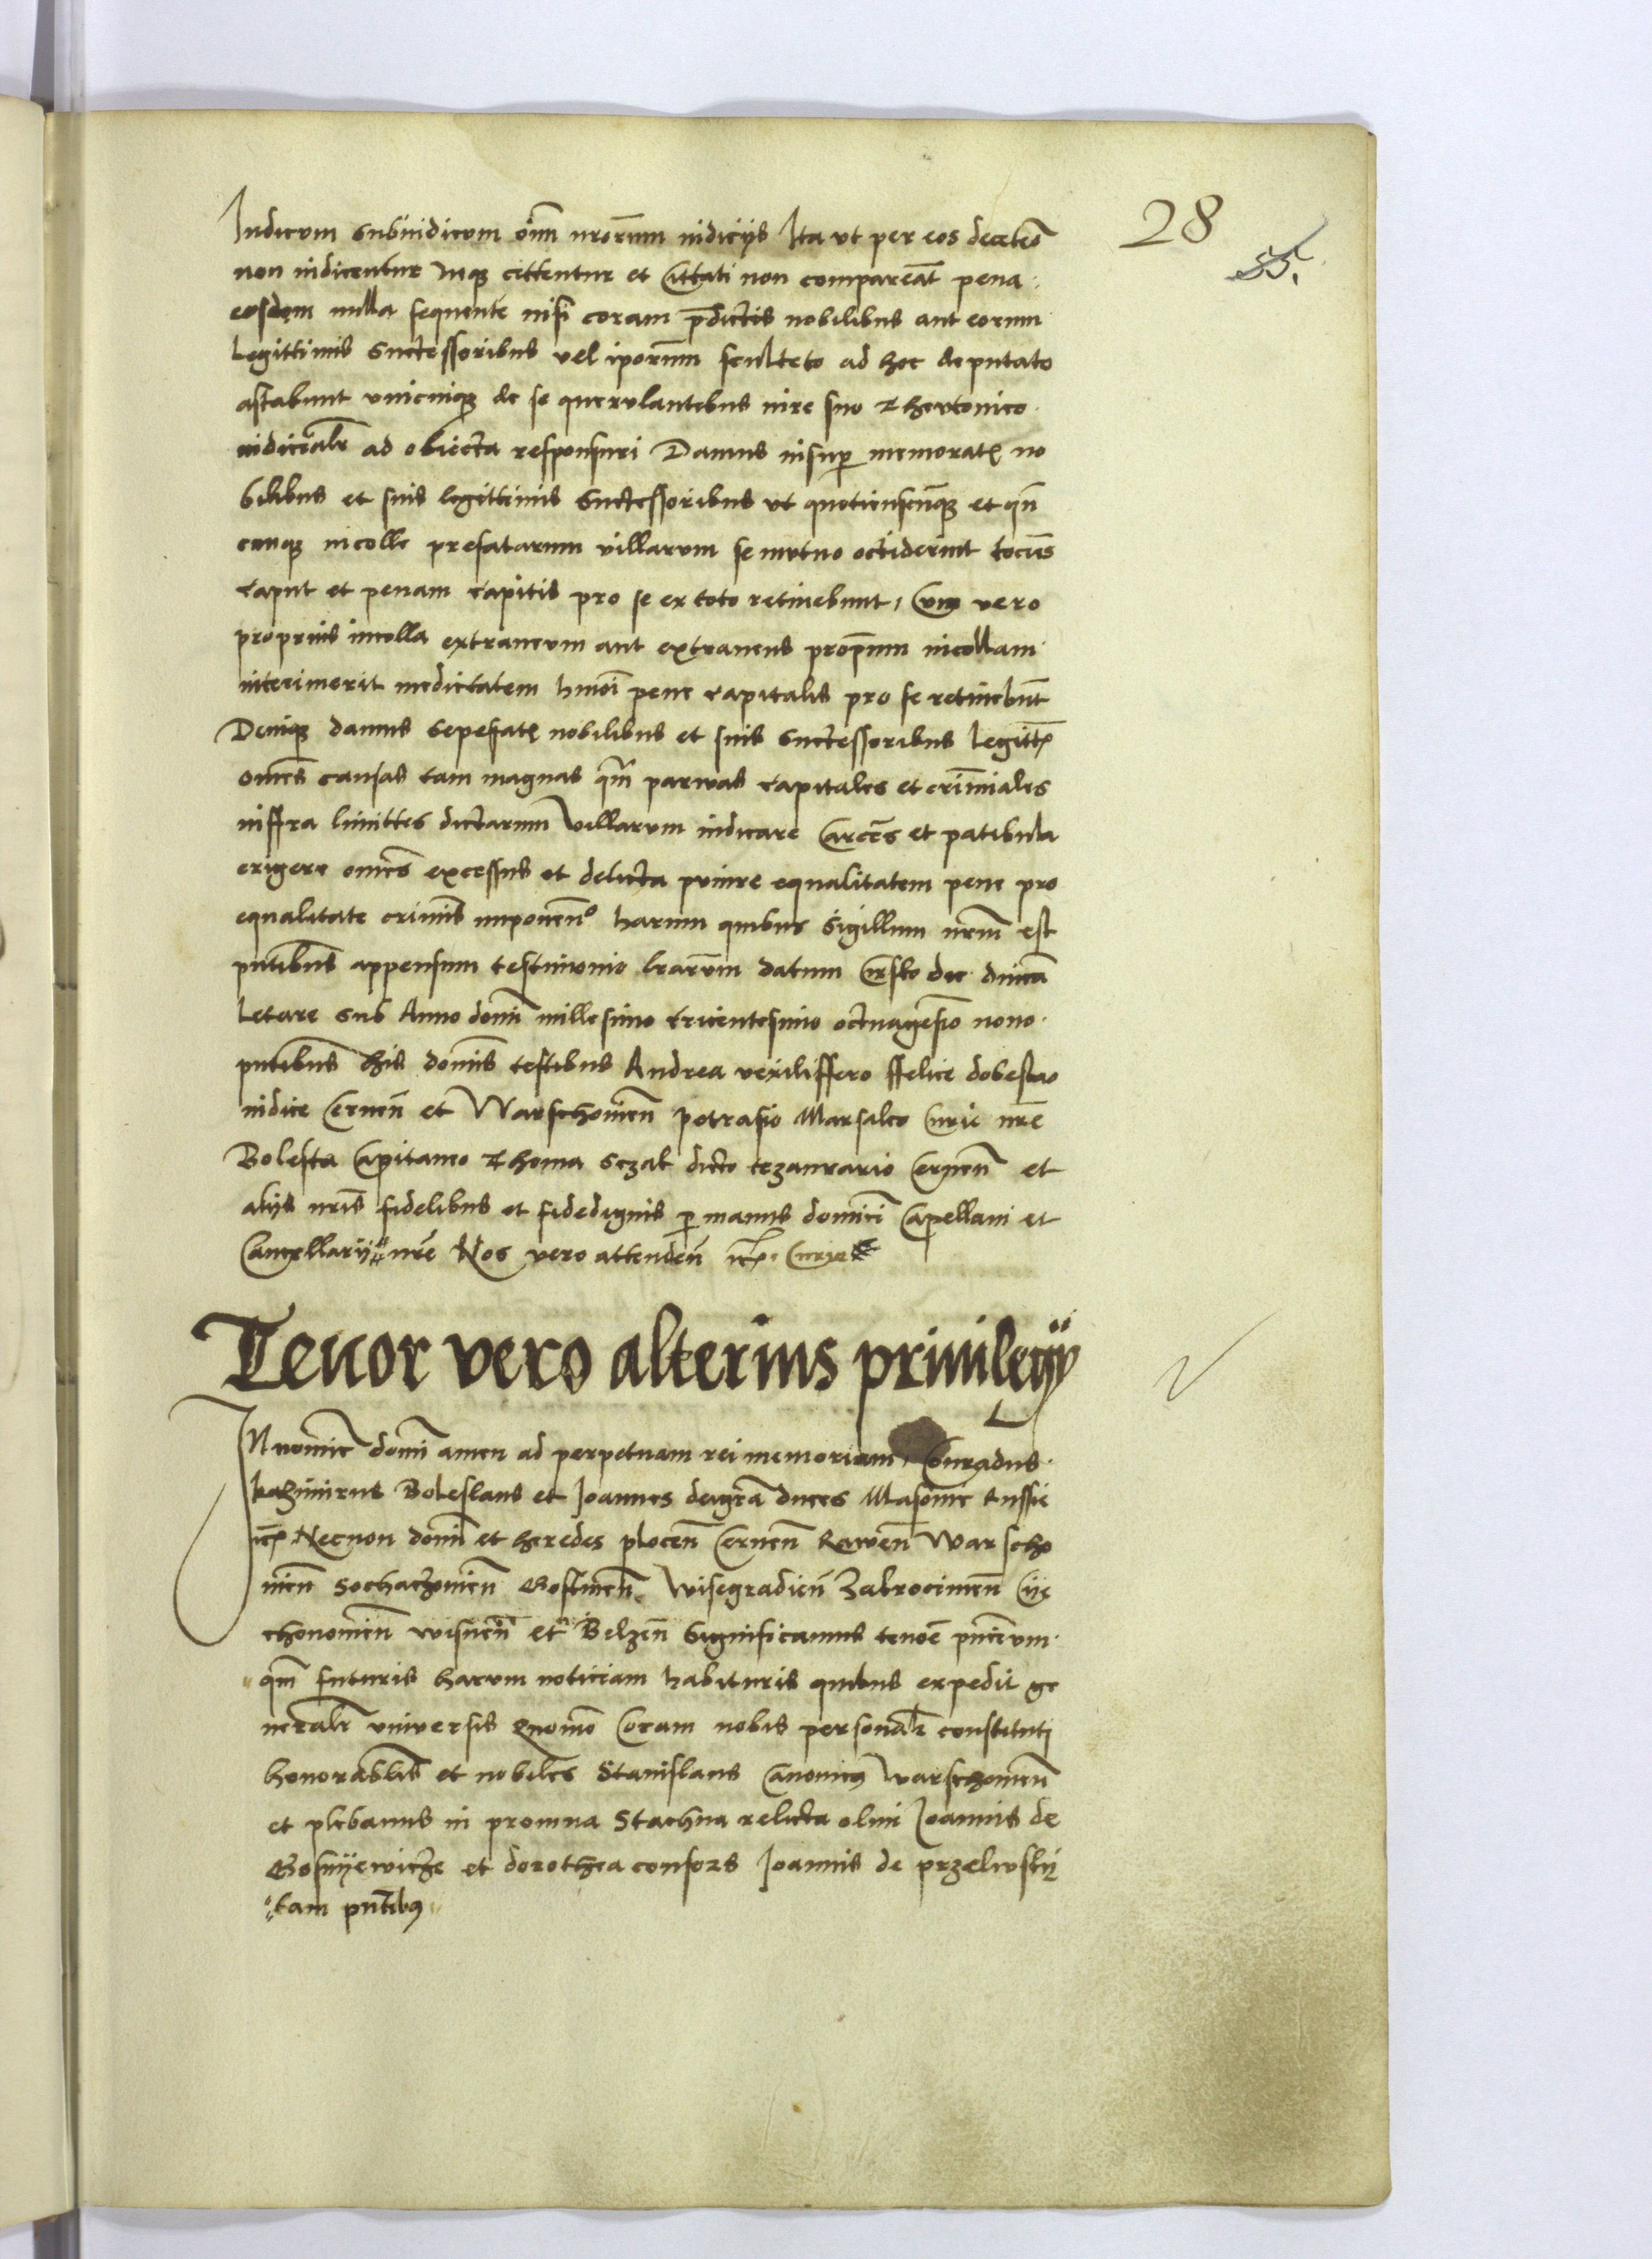 28
55.
Iudicum subiudicum oĩm nrorum iudicijs Ita vt per eos decetero
non iudicentur neqꝫ cittentur et cittati non compareãt pena
eosdem nulla sequente nisi coram p̃dictis nobilibus aut eorum
legittimis successoribus vel ip̃orum sculteto ad hoc deputato
astabunt vnicuiqꝫ de se querulantibus iure suo Theutonico
iudicialr̃ ad obiecta responsuri Damus insuper memoratꝭ no
bilibus et suis legittimis successoribus vt quotienscũqꝫ et qñ
cunqꝫ incolle prefatarum villarum se mutuo occiderint tociẽs
caput et penam capitis pro se ex toto retinebunt, Cum vero
proprius incolla extraneum aut extraneus propr̃ium incollam
interimerit medietatem hmõi pene capitalis pro se retinebũt
Deniqꝫ damus sepefatꝭ nobilibus et suis successoribus legittꝭ
omẽs causas tam magnas qm̃ parwas capitales et crim̃inales
inffra limittes dictarum villarum iudicare Carcẽs et patibula
erigere omẽs excessus et delicta punire equalitatem pene pro
equalitate crimĩs imponenᵒ harum quibus sigillum nrm̃ est
pñtibus appensum testimonio lrãrum datum Crsko die dñica
letare sub Anno domĩ millesimo tricentesimo octuagesĩo nono
pñtibus his domĩs testibus Andrea vexiliffero ffelice dobeslao
iudice Cernen̄ et Warschouien̄ petrasio Marsalco Curie nrẽ
Bolesta Capitaneo Thoma sczak dicto tezaurario Cernen̄ et
alijs nrĩs fidelibus et fidedignis per manus dominici Capellani et
Cancellarij nrẽ Nos vero attendeñ etcꝭ. Curie
Tenor vero alterius priuilegij
IN nomiẽ domĩ amen ad perpetuam rei memoriam, Conradus
kazimirus Boleslaus et Joannes dei grã duces Masouie Russie
etcꝭ Necnon domĩ et heredes plocen̄ Cernen̄ Rawen̄ Warscho
uien̄ Sochaczouien̄ Gostinen̄ Wisegradien̄ Zakrocimen̄ Cie
chonouien̄ wisnen̄ et Belzen̄ Significamus tenorẽ pñcium
qm̃ futuris harum noticiam habituris quibus expedit ge
neralr̃ vniuersis Quomõ Coram nobis personalr̃ constituti
honorabĩlis et nobiles Stanislaus Canonicꝰ Warschouien̄
et plebanus in promna Stachna relicta olim Joannis de
Gosnyewicze et dorothea consors Joannis de przelwskij
tam pñtibꝰ